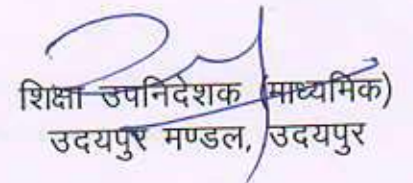 शिक्षा उपनिदेशक (माध्यमिक)
उदयपुर मण्डल, उदयपुर